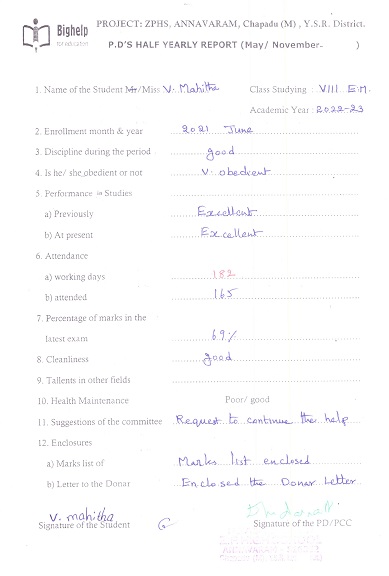 Bighelp
for education
PROJECT: ZPHS, ANNAVARAM, Chapadu (M) , Y.S.R. District.
P.D'S HALF YEARLY REPORT (May/ November- )
1. Name of the Student Mr/Miss V. Mahitha Class Studying : VIII E.M.
Academic Year : 2022-23
2. Enrollment month & year 2021 June
3. Discipline during the period good
4. Is he/ she obedient or not V. obedient
5. Performance in Studies
a) Previously Excellent
b) At present Excellent
6. Attendance
a) working days 182
b) attended 165
7. Percentage of marks in the
latest exam 69%
8. Cleanliness good
9. Tallents in other fields
10. Health Maintenance Poor/ good
11. Suggestions of the committee Request to continue the help
12. Enclosures
a) Marks list of Marks list enclosed
b) Letter to the Donar Enclosed the Donar Letter
V. mahitha
Signature of the Student Signature of the PD/PCC